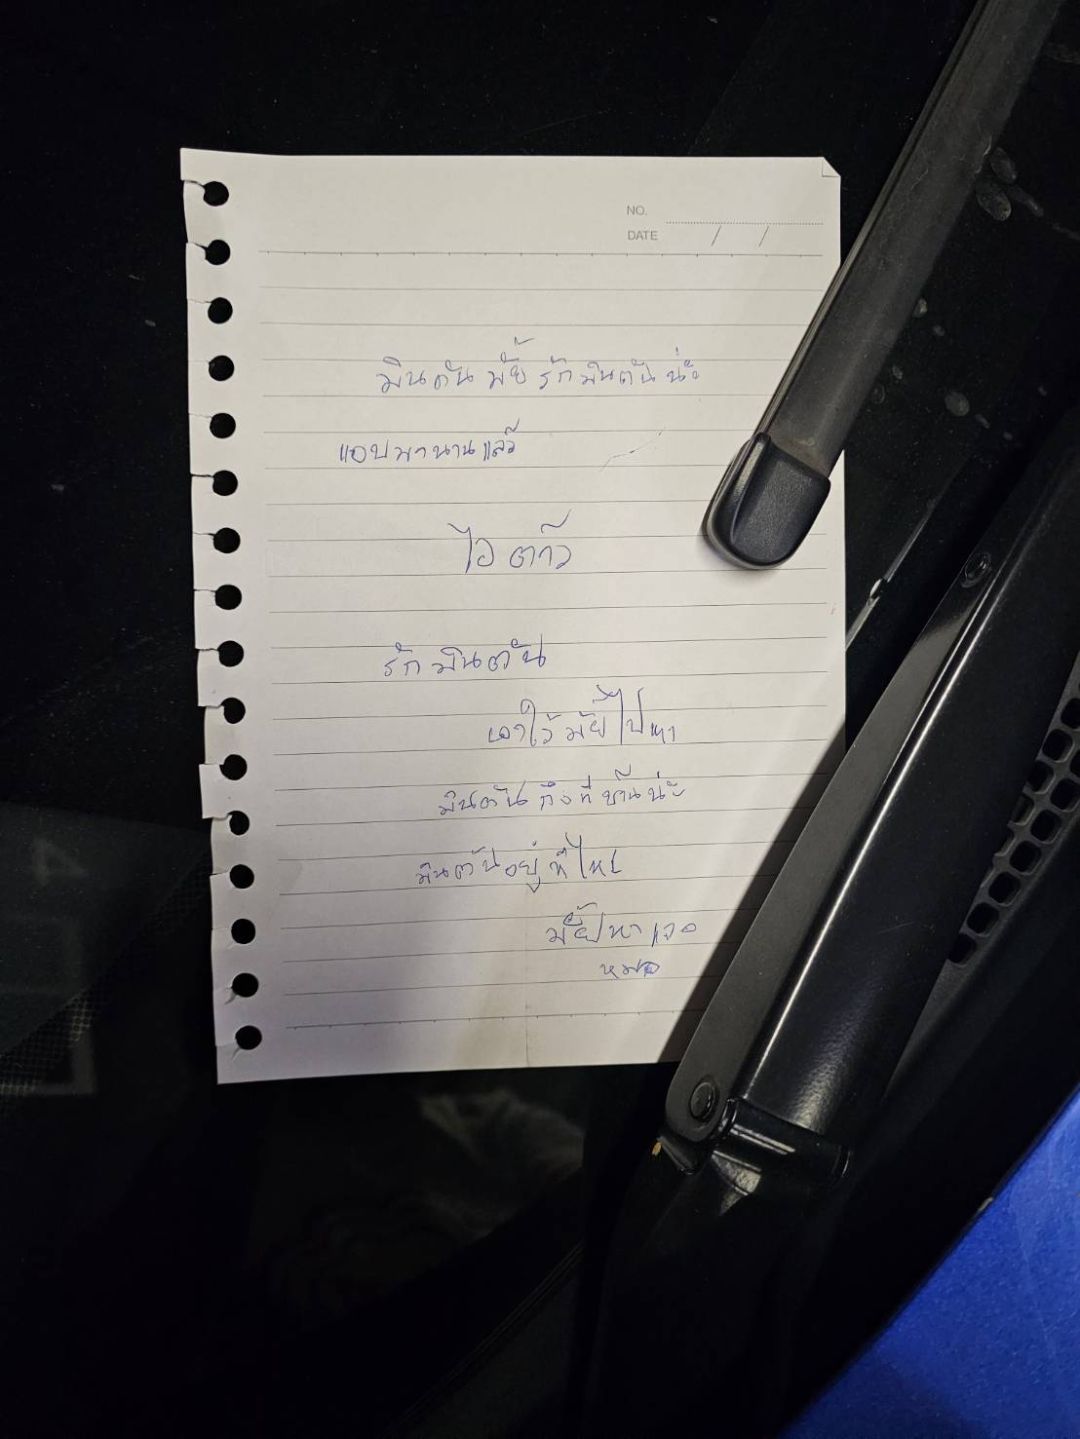 NO.
DATE / /
มินตัน มั้ย รักมินตัน น่ะ
แอบมานานแล้ว
ไอต้าว
รักมินตัน
เอาไว้มัย้ไปหา
มินตัน ถึงที่บ้านน่ะ
มินตันอยู่ที่ไหน
มั้ยหาเจอ
หมด